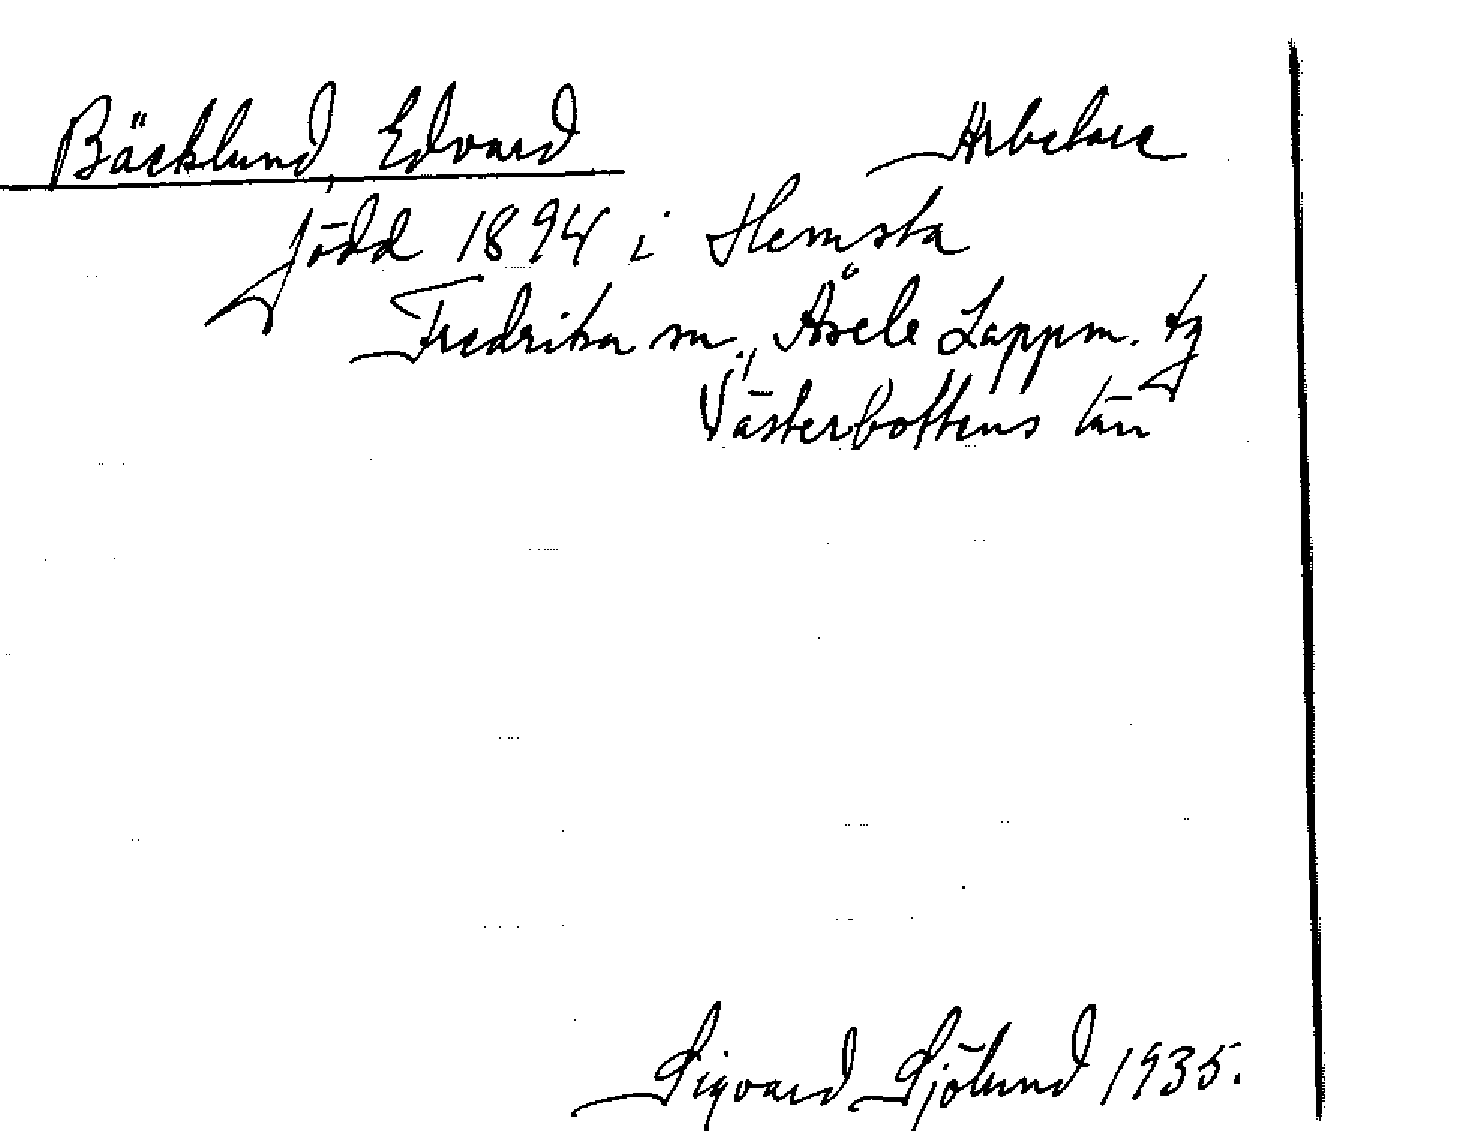 Bäcklund, Edvard Arbetare
född 1894 i Hemsta
Fredrika sn., Åsele Lappm. tg
Västerbottens län
Sigvard Sjölund 1935.